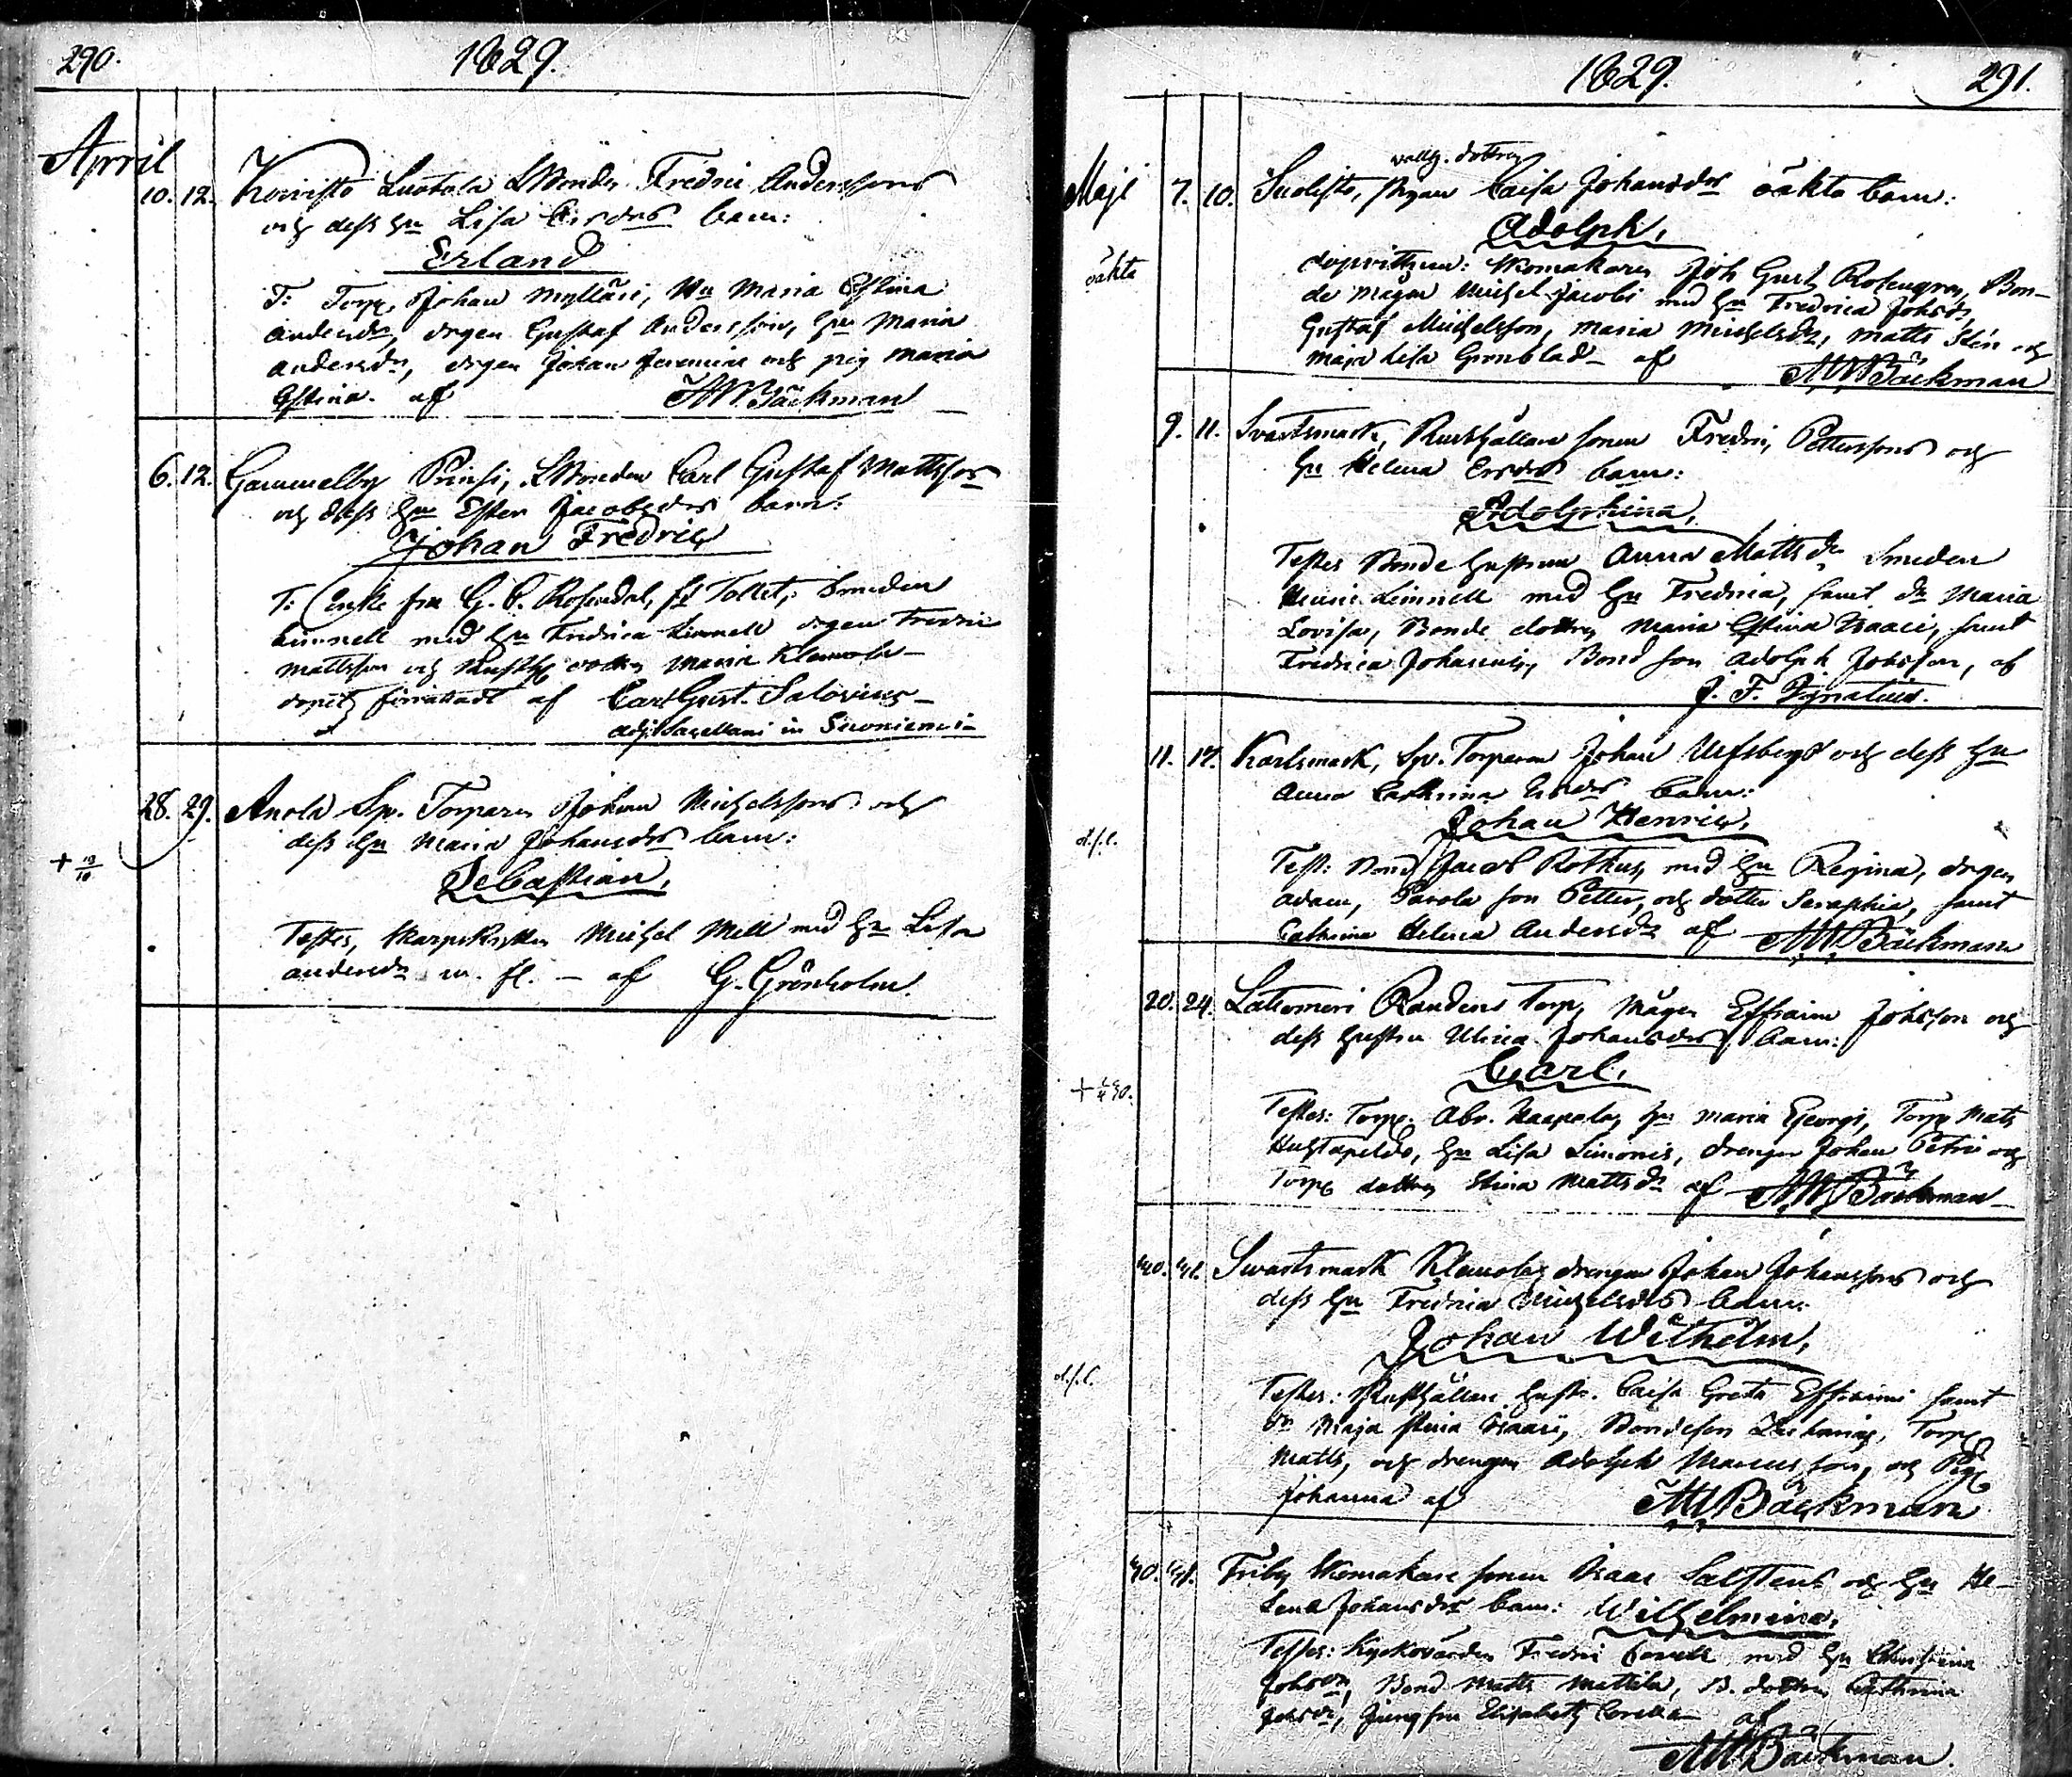 290. 1829.
April
10. 12. Koivisto Luotola LBonden Fredric Anderssons
och dess hu Lisa Ersdrs barn:
Erland
T: Torp. Johan Mylläri, hu Maria Christina
Andersdr, drgen Gustaf Andersson, hu Maria
Andersdr, drgen Johan Jeremiæ och pig Maria
Christina. af AWBäckman
6. 12. Gammelby Prinsi, LBonden Carl Gustaf Mattsson
och dess hu Ester Jacobsdrs barn:
Johan Fredric
T: Enke fru G. C. Rosendal, Tollet, Smeden
Limnell med hu Fredrica Limnell drgen Fredric
Mattsson och dottren Maria Klemola
dopet förrättadt af Carl Gust. Salovius
adj. Sacellani in Suoniemi
28. 29. Anola Sp. Torparen Johan Michelssons och
dess hu Maria Johansdrs barn:
Sebastian,
Testes, Skarpskytten Michel Mell med hu Lisa
Andersdr m. fl. – af G. Grönholm.
1829. 291.
Maji
vallh. dottren
7. 10. Suolisto, Caisa Johansdrs oäkta barn:
Adolph,
oäkta
dopvittnen: Skomakaren Joh Gust Rosengren, Bon-
de mågen Michel Jacobi med hu Fredrica Johsdr,
Gustaf Michelsson, Maria Michelsdr, Matts Sten och
Maja Lisa Grönblad af AWBäckman
9. 11. Svartsmark, Rusthållare sonen Fredric Petterssons och
hu Helena Ersdrs barn:
Adolphina,
Testes Bonde hustrun Anna Mattsdr Smeden
Henric Limnell med hu Fredrica, samt dr Maria
Lovisa, Bonde dottren Maria Christina Isaaci, samt
Fredrica Johannis, Bond son Adolph Johsson, af
J. F. Ignatius.
11. 17. Karlsmark, Sp. Torparen Johan Ulfsberg och dess hu
Anna Cathrina barn:
Johan Henric,
Test: Bond Jacob Rothus, med hu Regina, drgen
Adam, Parola son Petter, och dotter Seraphia, samt
Cathrina Helena Andersdr af AWBäckman
20. 24. Lattomeri Randens Torp, mågen Effraim Johsson och
dess hustru Ulrica Johansdrs barn:
Carl.
Testes: Torp. Abr. Haapala, hu Maria Georgi, Torp Matts
hu Lisa Simonis, drengen Johan Petri och
Torp dottren Stina Mattsdr af AWBäckman
30. 31. Swartsmark Klemola, drengen Johan Johanssons och
dess hu Fredrica Michelsdrs barn:
Johan Wilhelm,
Testes: Rusthållare hustr. Caisa Greta Effraimi samt
dr Maja Stina Isaaci, Bondeson Zacharias, Torp
Matts, och drengen Adolph Marcusson, och Pig
Johanna af AWBäckman
30. 31. Friby Skomakare sonen Isaac Salstens och hu He-
lena Johansdrs barn: Wilhelmina,
Testes: Kyrkovärden Fredric med hu Christina
Johsdr, Bond Matts Mattila, B. dottren Cathrina
Johsdr, Jungfru Elisabeth af
AWBäckman.